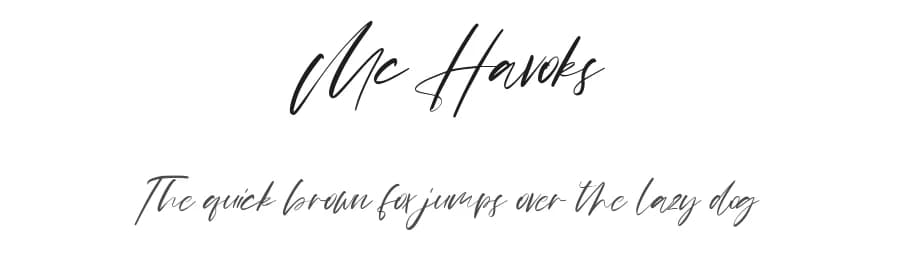 Mc Havoks
The quick brown fox jumps over the lazy dog